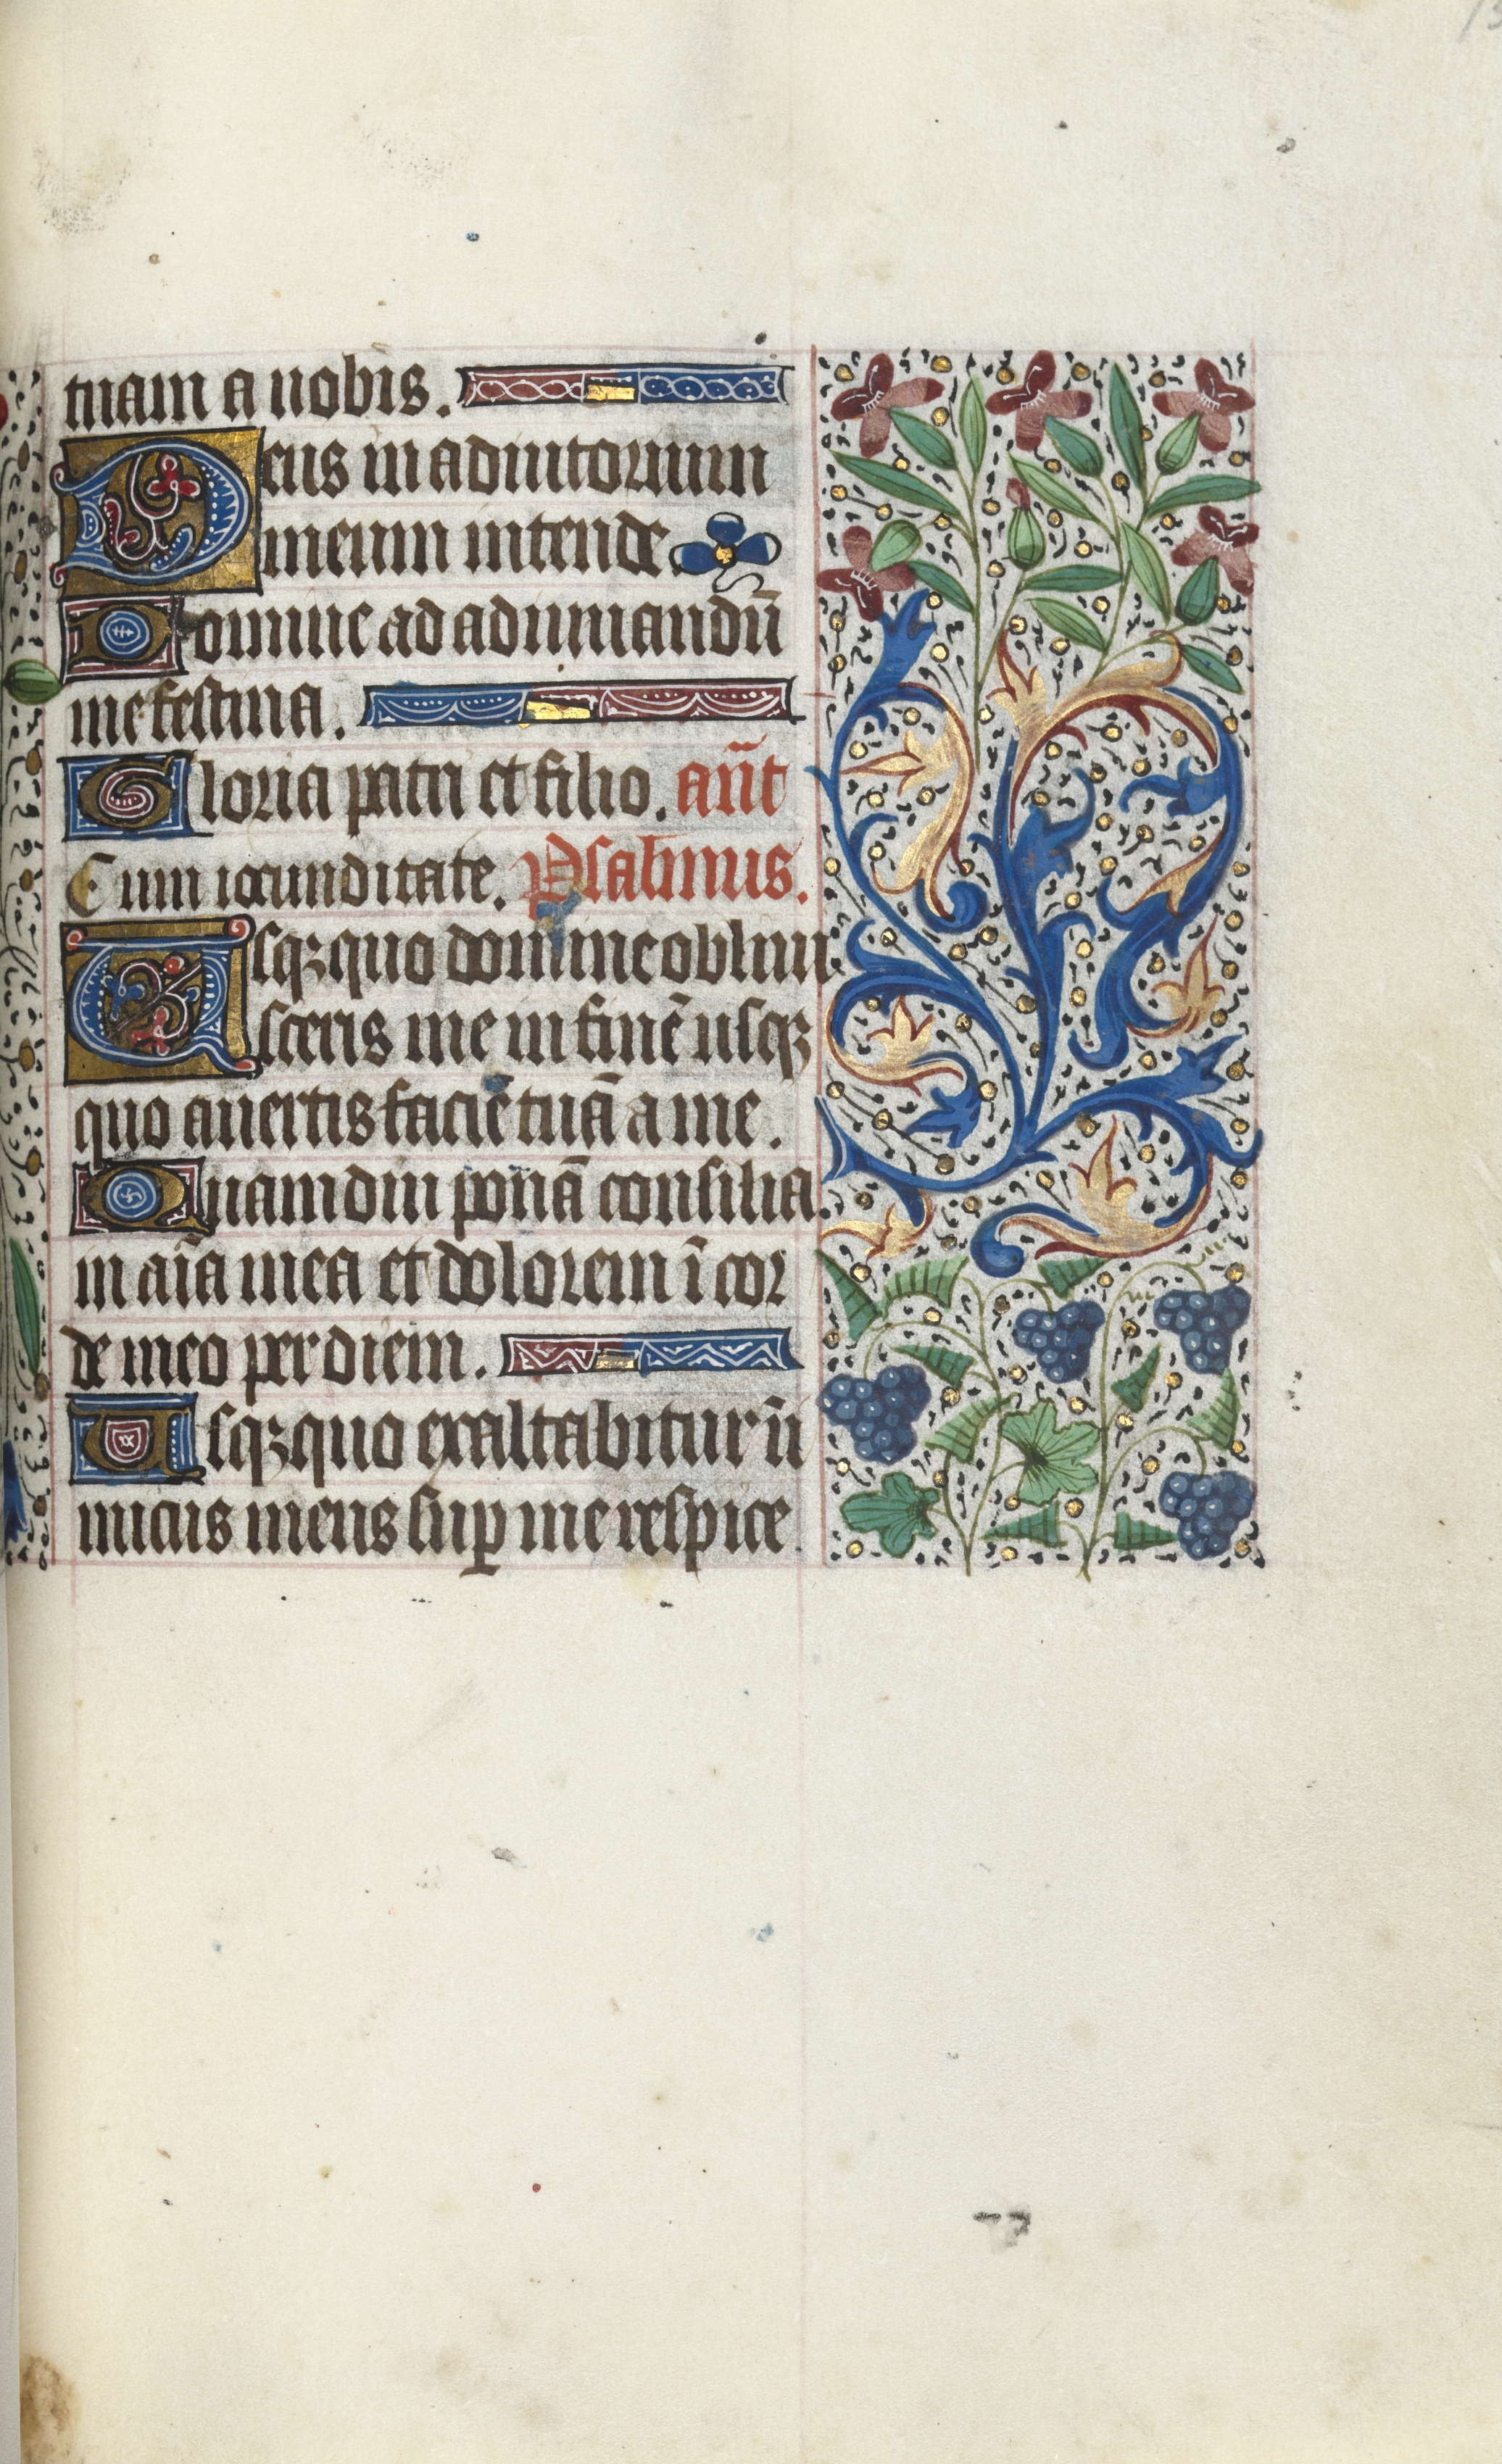 tuam a nobis.
Deus in adiutorium
meum intende.
Domine ad adiuuandū
me festina.
Gloria patri et filio. an̄t
Cum iocunditate. Psalmus.
Usqꝫquo domine obliui
sceris me in finē usqꝫ
quo auertis faciē tuā a me.
Quamdiu ponā consilia
in aīa mea et dolorem ī cor
de meo per diem.
Usqꝫquo exaltabitur in̄
micus meus suꝑ me respice